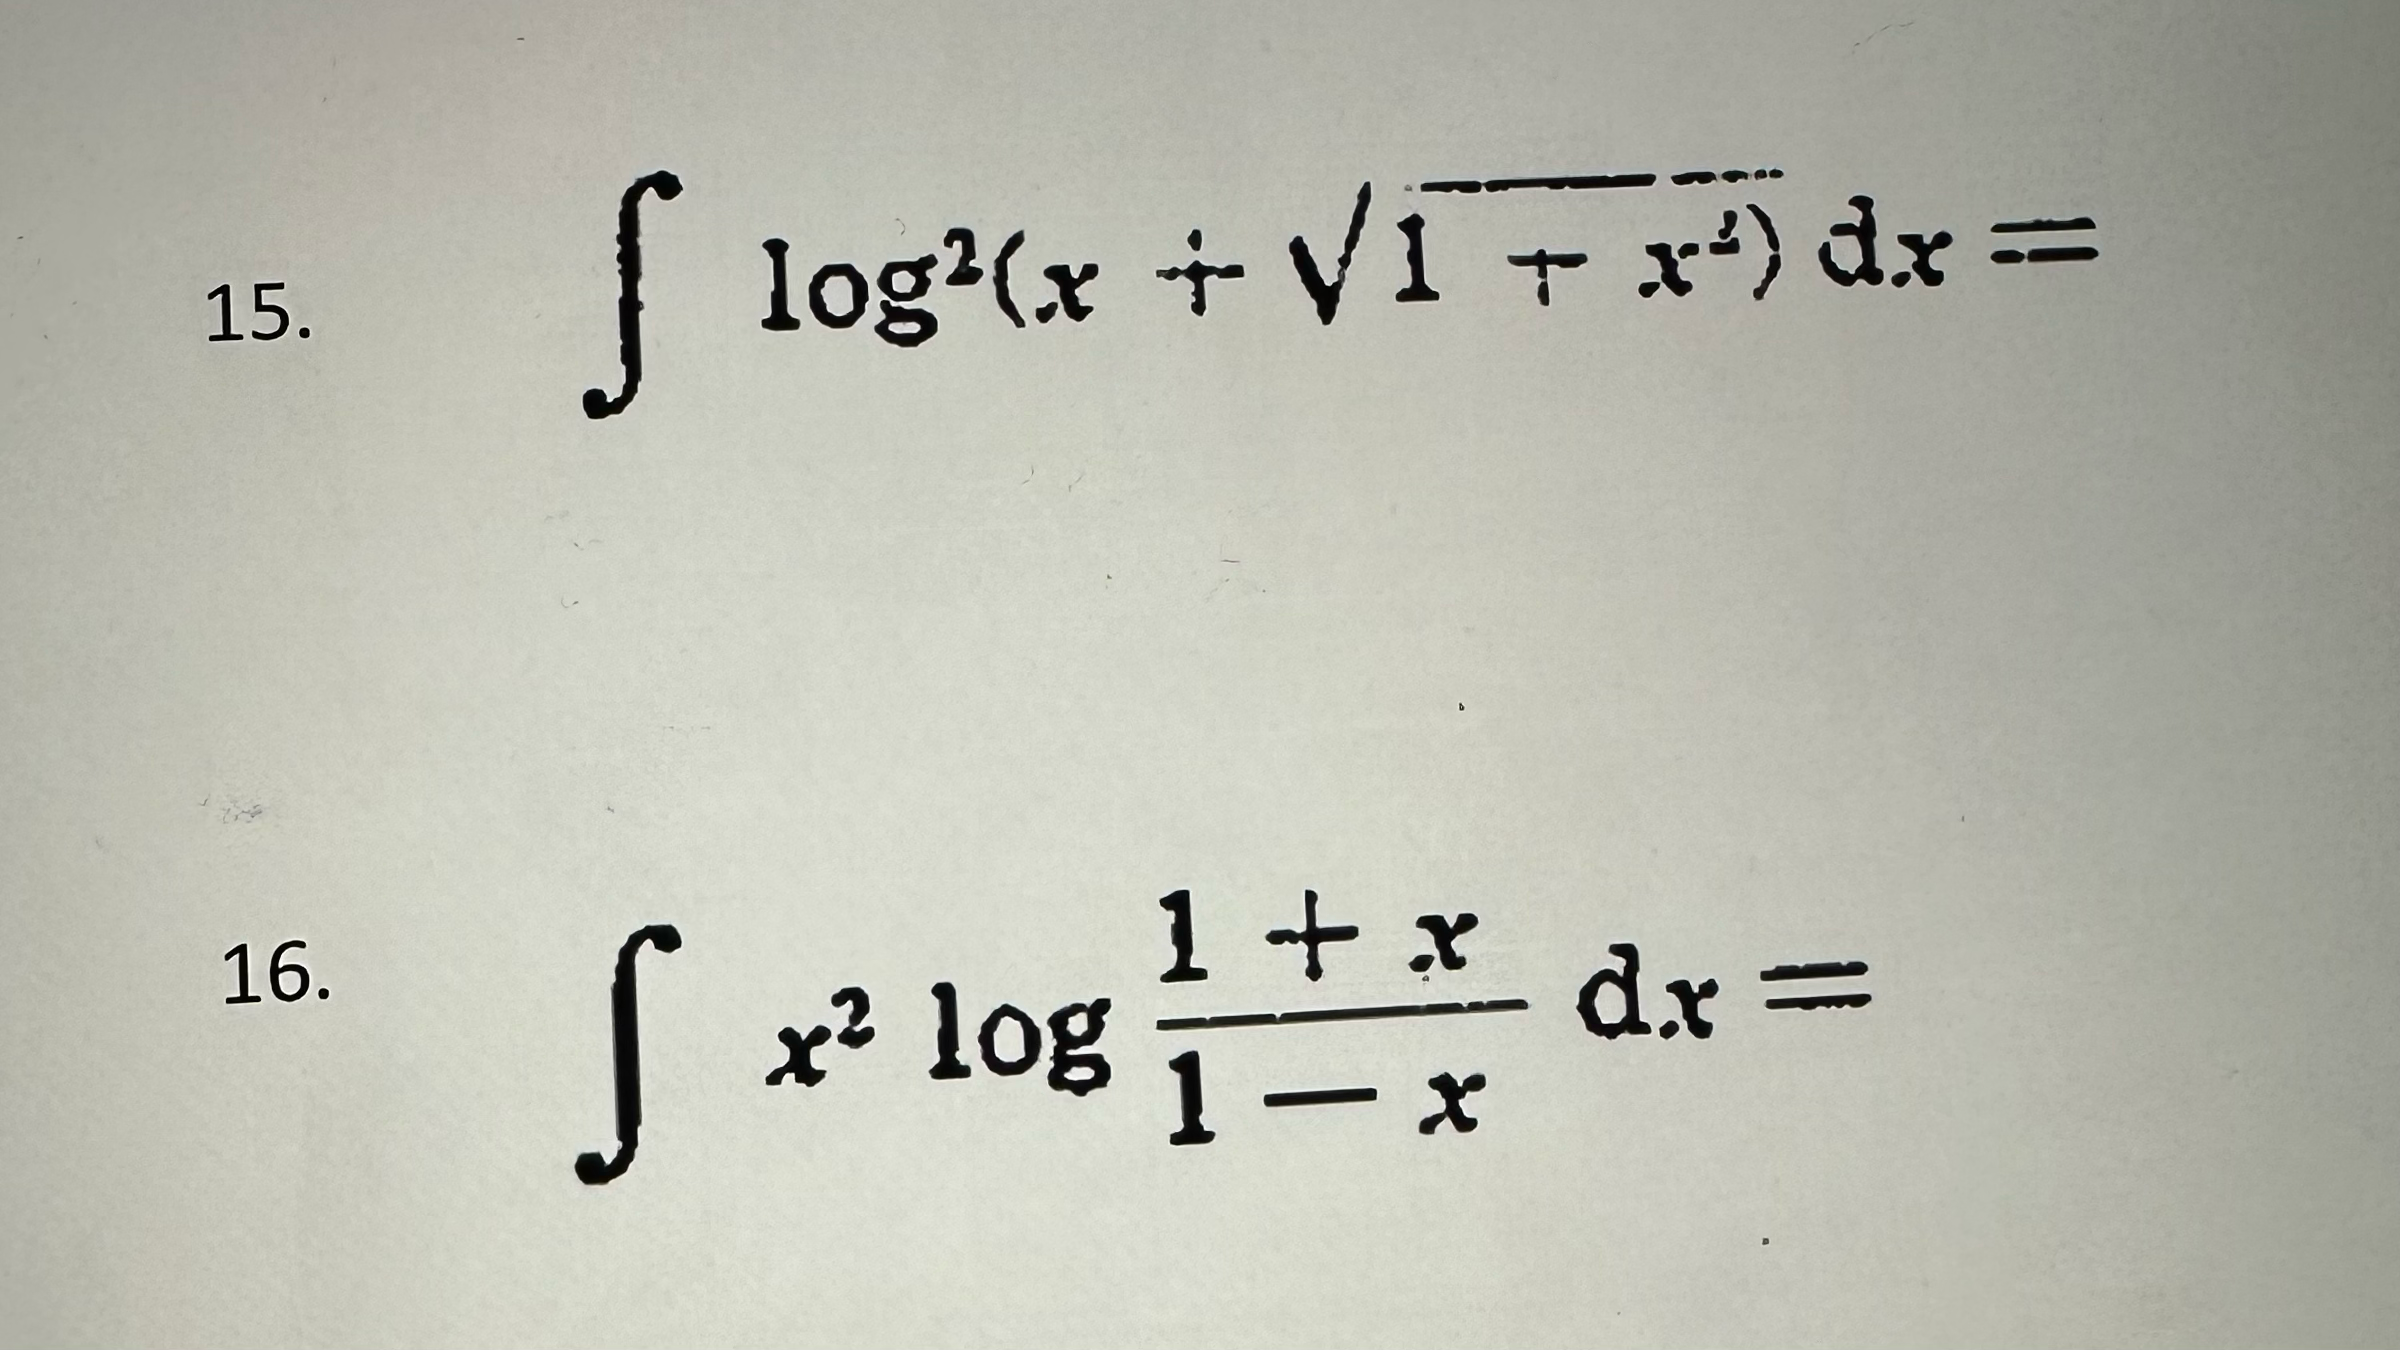 15. ∫ log²(x + √1 + x²) dx =
16. ∫ x² log 1 + x / 1 − x dx =